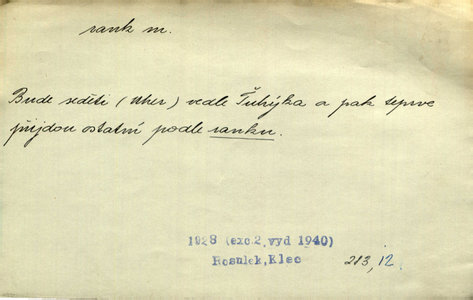 rank m.
Bude seděti (Uher) vedle Ťuhýka a pak teprve
přijdou ostatní podle ranku.
1928 (exc.2.vyd 1940)
Rosulek, Klec
213, 12.